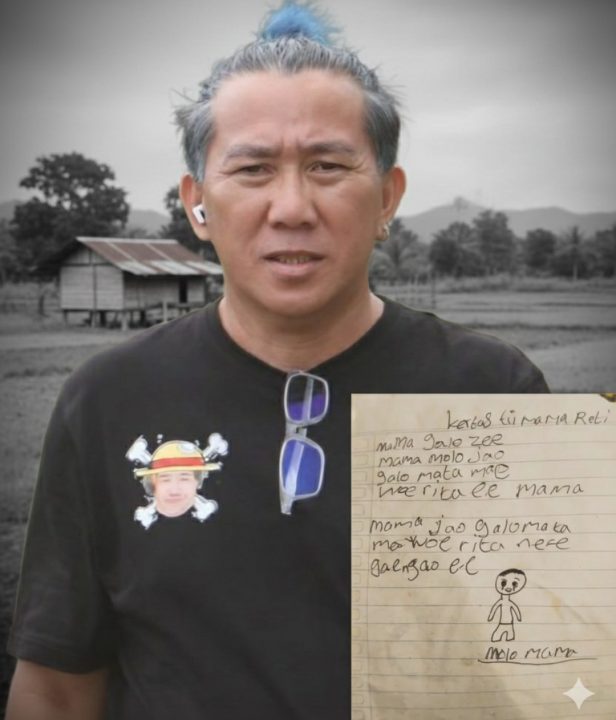 Kertas tii mama Reti
mama galo zee
mama molo jao
galo mata mae
woe rita ee mama
mama jao galo mata
mae woe rita
molo mama